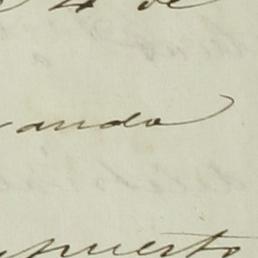 4 de
anda
puesto